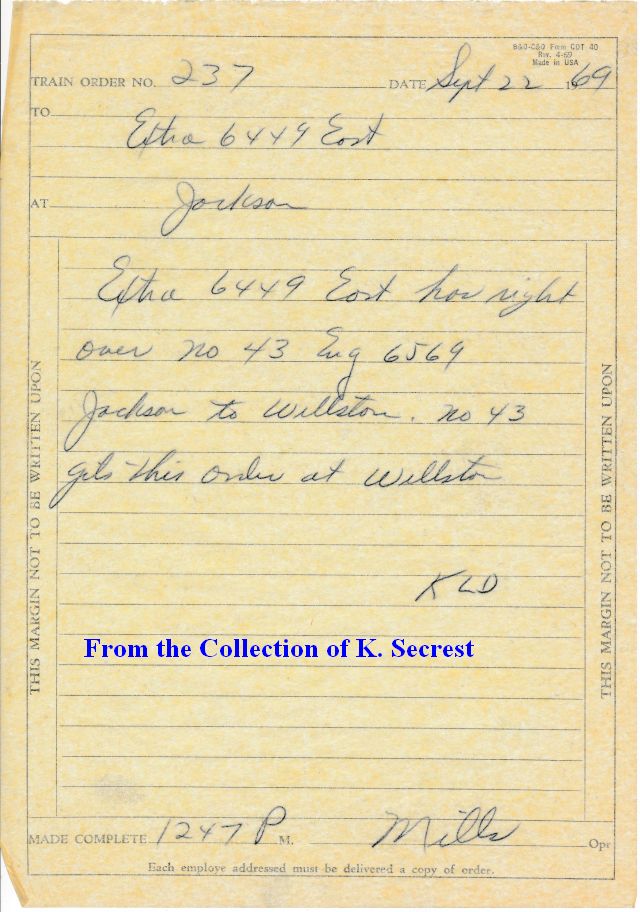 B&O-C&O Form CDT 40
Rev. 4-69
Made in USA
TRAIN ORDER NO. 237 DATE Sept 22 1969
TO Extra 6449 East
AT Jackson
Extra 6449 East has right
over no 43 Eng 6569
Jackson to Willston. no 43
gets this order at Willston
KLD
THIS MARGIN NOT TO BE WRITTEN UPON
THIS MARGIN NOT TO BE WRITTEN UPON
From the Collection of K. Secrest
MADE COMPLETE 1247 P M. Mills Opr
Each employe addressed must be delivered a copy of order.